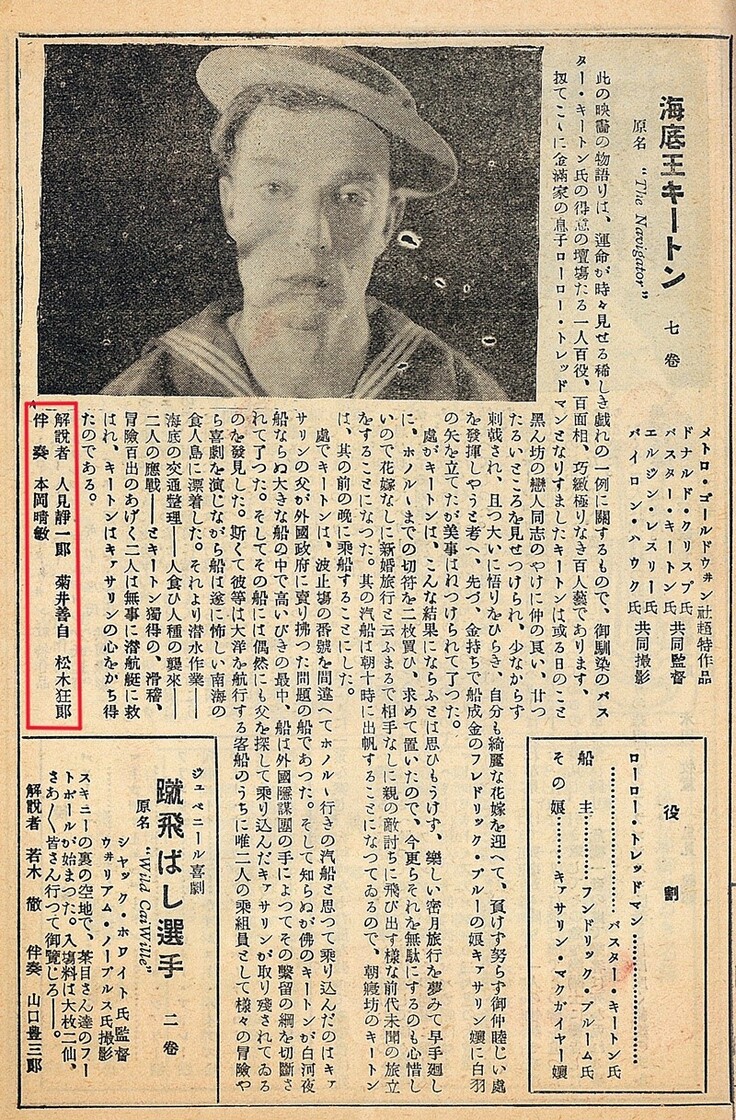 海底王キートン 七卷
原名 “The Navigator”
メトロ・ゴールドウ井ン社超特作品
ドナルド・クリスプ氏
バスター・キートン氏 共同監督
エルジン・レスリー氏
バイロン・ハウク氏 共同撮影
役割
ローロー・トレッドマン‥‥‥‥‥バスター・キートン氏
船主‥‥‥‥‥フンドリック・ブルーム氏
その娘‥‥‥‥‥キァサリン・マクガイヤー孃
此の映畵の物語りは、運命が時々見せる稀しき戯れの一例に關するもので、御馴染のバス
ター・キートン氏の得意の壇塲たる一人百役、百面相、巧緻極りなき百人藝であります、
扨てこゝに金滿家の息子ローロー・トレッドマンとなりすましたキートンは或る日のこと
黑ん坊の戀人同志のやけに仲の良い、甘つ
たるいところを見せつけられ、少なからず
刺戟され、且つ大いに悟りをひらき、自分も綺麗な花嫁を迎へて、負けず努らず御仲睦じい處
を發揮しやうと考へ、先づ、金持ちで船成金のフレドリック・ブルーの娘キァサリン孃に白羽
の矢を立てたが美事はねつけられて了つた。
處がキートンは、こんな結果にならふとは思ひもうけず、樂しい密月旅行を夢みて早手廻し
に、ホノルヽまでの切符を二枚買ひ、求めて置いたので、今更らそれを無駄にするのも心惜し
いので花嫁なしに新婚旅行と云ふまるで相手なしに親の敵討ちに飛び出す樣な前代未聞の旅立
をすることになつた。其の汽船は朝十時に出帆することになつてゐるので、朝寢坊のキートン
は、其の前の晩に乘船することにした。
處でキートンは、波止塲の番號を間違へてホノルヽ行きの汽船と思つて乘り込んだのはキァ
サリンの父が外國政府に賣り拂つた問題の船であつた。そして知らぬが佛のキートンが白河夜
船ならぬ大きな船の中で高いびきの最中、船は外國隱謀團の手によつてその繋留の綱を切斷さ
れて了つた。そしてその船には偶然にも父を探して乘り込んだキァサリンが取り殘されてゐる
のを發見した。斯くて彼等は大洋を航行する客船のうちに唯二人の乘組員として樣々の冒險や
ら喜劇を演じながら船は遂に怖しい南海の
食人島に漂着した。それより潜水作業――
海底の交通整理――人食ひ人種の襲來――
二人の應戰――とキートン獨得の、滑稽、
冒險百出のあげく二人は無事に潜航艇に救
はれ、キートンはキァサリンの心をかち得
たのである。
解說者 人見靜一郎 菊井善自 松木狂郎
伴奏 本岡晴敏
ジュベニール喜劇
蹴飛ばし選手 二卷
原名 “Wild Cat Wille”
シャック・ホワイト氏監督
ウ井リアム・ノーブルス氏撮影
スキニーの裏の空地で、茶目さん達のフー
トボールが始まつた。入塲料は大枚二仙、
さあ〳〵皆さん行つて御覽じろ――。
解說者 若木徹 伴奏 山口豊三郎